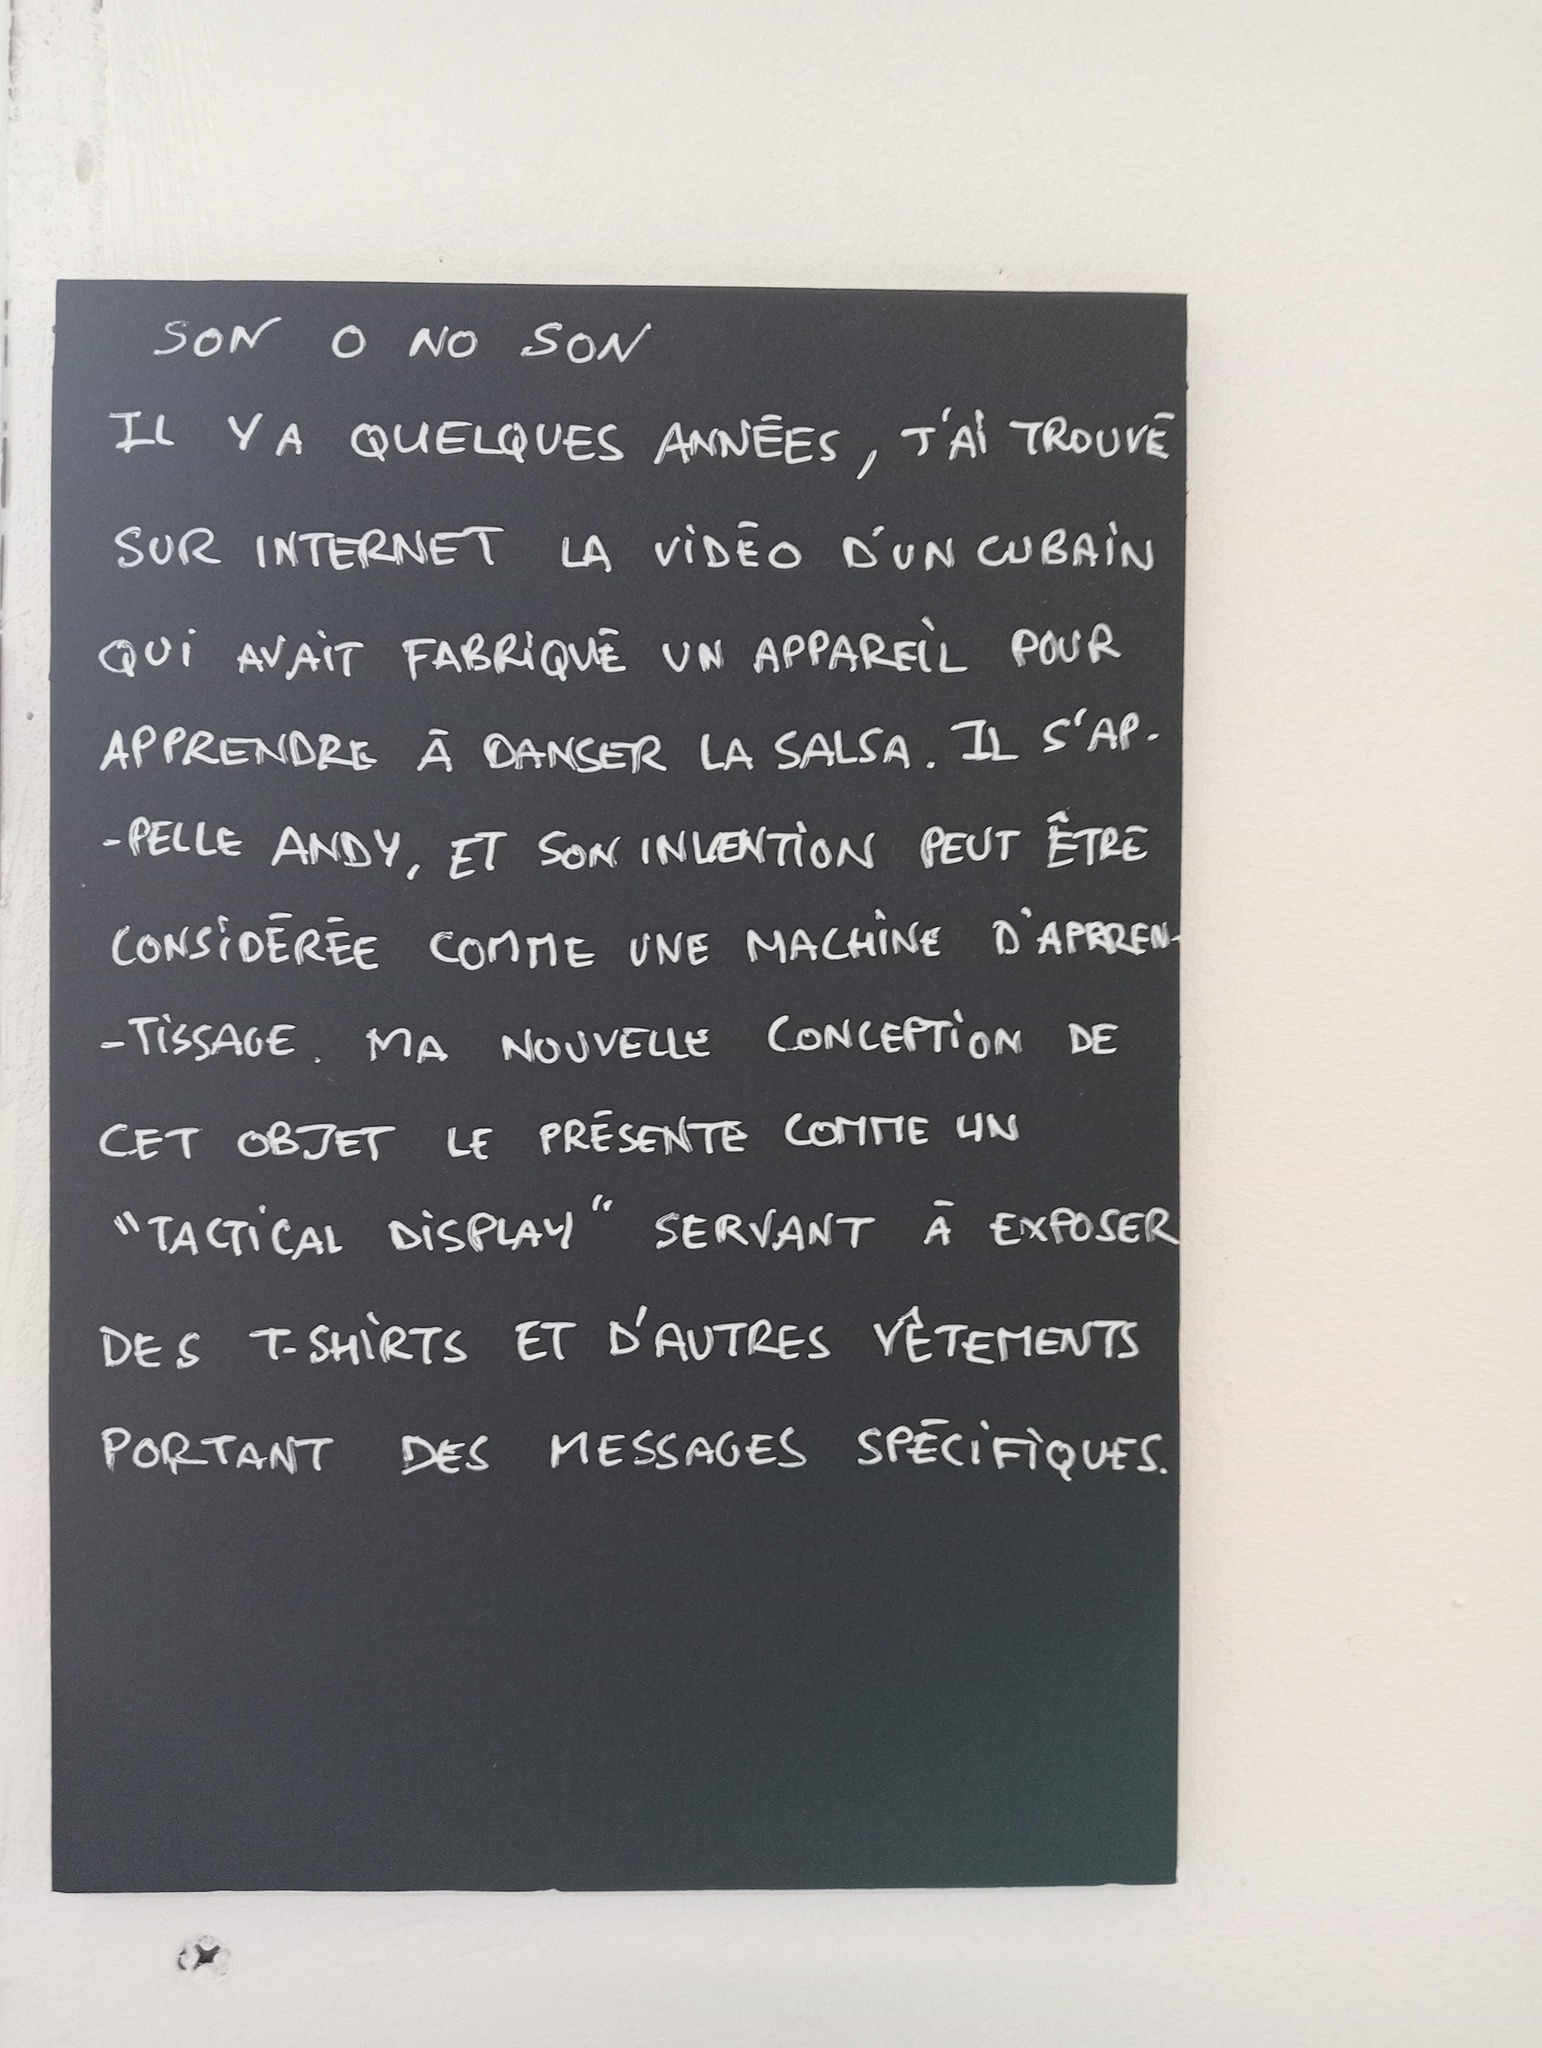 SON O NO SON
IL Y A QUELQUES ANNÉES, J'AI TROUVÉ
SUR INTERNET LA VIDÉO D'UN CUBAIN
QUI AVAIT FABRIQUÉ UN APPAREIL POUR
APPRENDRE À DANSER LA SALSA. IL S'AP-
-PELLE ANDY, ET SON INVENTION PEUT ÊTRE
CONSIDÉRÉE COMME UNE MACHINE D'APPREN-
-TISSAGE. MA NOUVELLE CONCEPTION DE
CET OBJET LE PRÉSENTE COMME UN
"TACTICAL DISPLAY" SERVANT À EXPOSER
DES T-SHIRTS ET D'AUTRES VÊTEMENTS
PORTANT DES MESSAGES SPÉCIFIQUES.